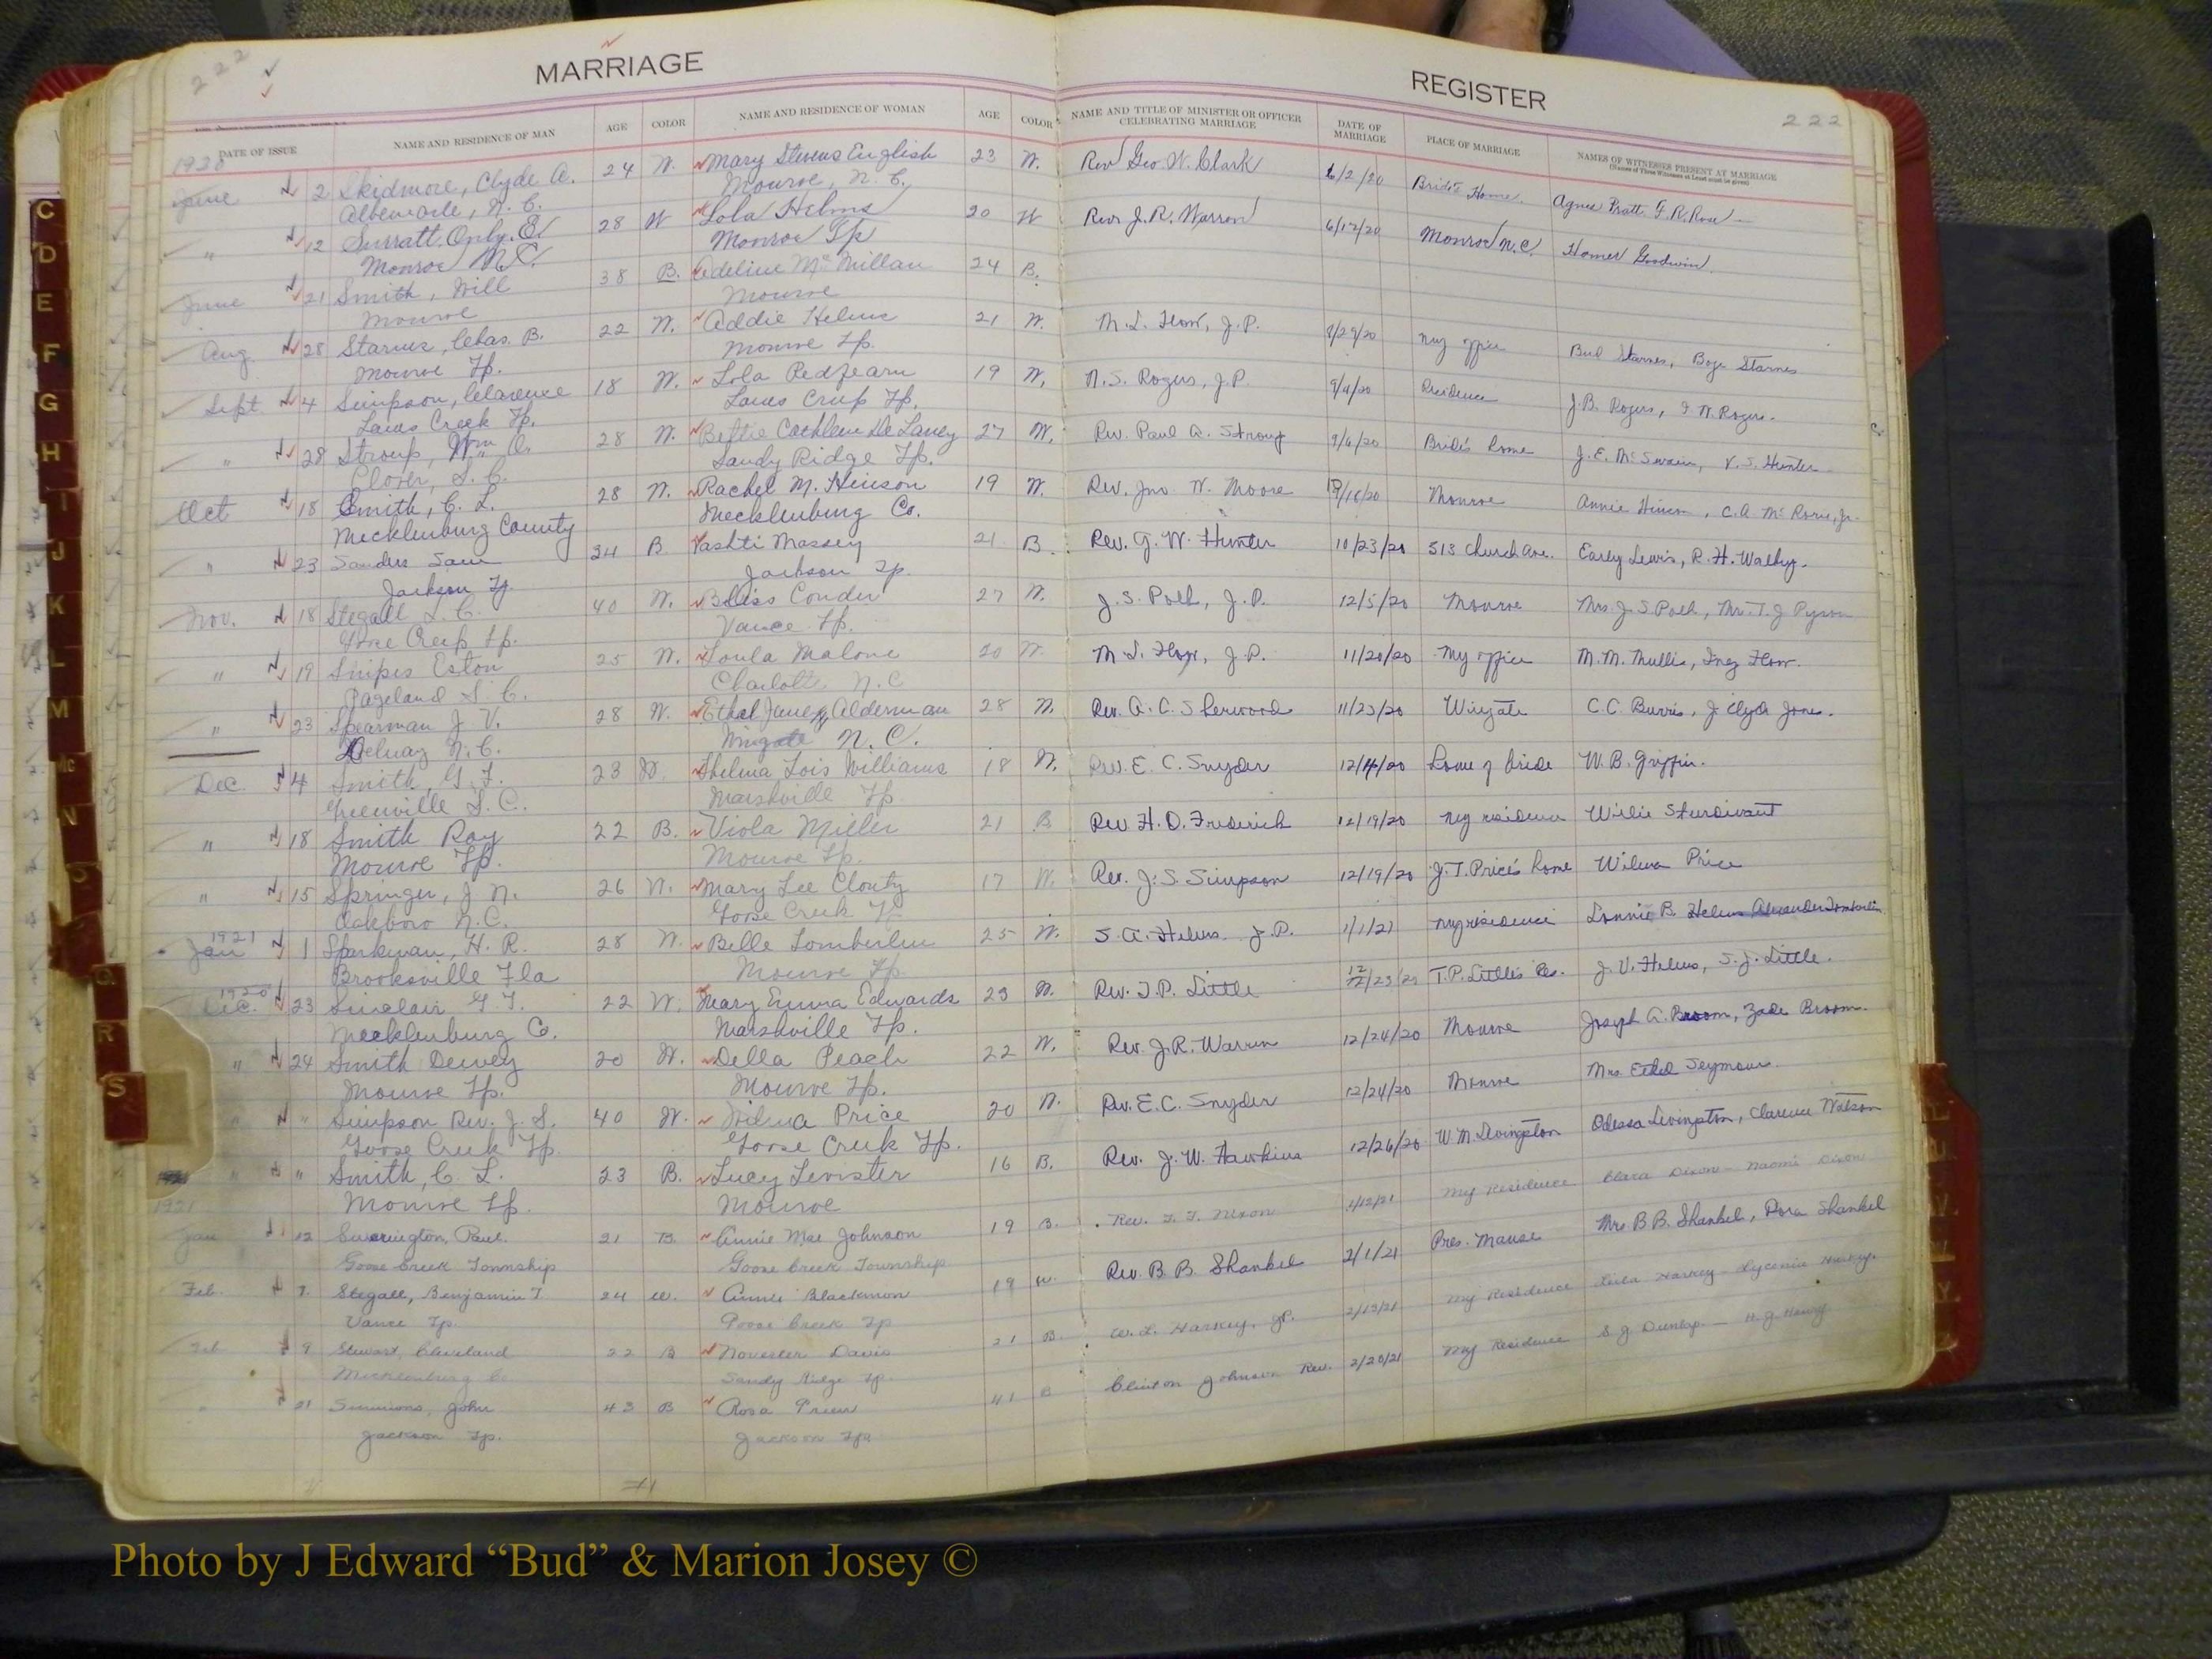 222
MARRIAGE
REGISTER
222
DATE OF ISSUE NAME AND RESIDENCE OF MAN AGE COLOR NAME AND RESIDENCE OF WOMAN AGE COLOR NAME AND TITLE OF MINISTER OR OFFICER CELEBRATING MARRIAGE DATE OF MARRIAGE PLACE OF MARRIAGE NAMES OF WITNESSES PRESENT AT MARRIAGE
1920
June 2 Skidmore, Clyde A. 24 W. Mary Stevens English 23 W. Rev Geo. W. Clark 6/2/20 Bride's Home. Agnes Pratt F. R. Rose
Albemarle, N. C. Monroe, N. C.
" 12 Surratt Only. E. 28 W Lola Helms 20 W Rev J. R. Warren 6/12/20 Monroe N.C. Homer Goodwin.
Monroe N.C. Monroe Tp
June 21 Smith, Will 38 B. Adeline McMillan 24 B.
Monroe Monroe
Aug. 28 Starnes, Chas. B. 22 W. Addie Helms 21 W. M. L. Flow, J.P. 8/29/20 my office Bud Starnes, Starnes
Monroe Tp. Monroe Tp.
Sept 4 Simpson, Clarence 18 W. Lola Redfearn 19 W. N. S. Rogers, J.P. 9/4/20 Residence J. B. Rogers, Rogers.
Lanes Creek Tp. Lanes Creek Tp.
" 28 Stroup, Wm O. 28 W. Cathleen De Laney 27 W. Rev. Paul A. Stroup Bride's home J. E. McSwain, Hunter
Clover, S. C. Sandy Ridge Tp.
Oct 18 Smith, C. L. 28 W. Rachel M. Hinson 19 W. Rev. Jno W. Moore Monroe Annie Hinson, C. A. McRorie, Jr.
Mecklenburg County Mecklenburg Co.
" 23 Sanders Sam 24 B Vashti Massey 21 B. Rev. G. W. Hunter 10/23/20 513 Church Ave. Early Lewis, R. H.
Jackson Tp Jackson Tp.
Nov. 18 Stegall L. C. 40 W. Bliss Conder 27 W. J. S. Polk, J.P. 12/5/20 Monroe Mrs. J. S. Polk, T. J.
Goose Creek Tp. Vance Tp.
" 19 Snipes Eston 25 W. Malone 20 W. M. L. Flow, J.P. 11/20/20 My office M. M. Thullis, Inez Flow.
Pageland S. C. Charlotte N. C
" 23 Spearman J. V. 28 W. Ethel June Alderman 28 W. Rev. A. C. Sherwood 11/23/20 Wingate C. C. Burris, J. Clyde Jones.
Delway N. C. Wingate N. C.
Dec. 4 Smith, G. F. 23 W. Thelma Lois Williams 18 W. Rev. E. C. Snyder Home of bride W. B. Griffin.
Greenville S. C. Marshville Tp.
" 18 Smith Roy 22 B. Viola Miller 21 B Rev. H. D. Frederick 12/19/20 my residence Willie Sturdivant
Monroe Tp. Monroe Tp.
" 15 Springer, J. N. 26 W. Mary Lee Clonty 17 W. Rev. J. S. Simpson 12/19/20 J. T. Price's home Wilma Price
Oakboro N.C. Goose Creek Tp
1921
Jan 1 Sparkman, H. R. 28 W. Belle Tomberlin 25 W. S. A. Helms J.P. 1/1/21 my residence Lonnie B. Helms Alexander Tomberlin
Brooksville Fla Monroe Tp
1920
Dec. 23 Sinclair G. T. 22 W. Mary Emma Edwards 23 W. Rev. T. P. Little T. P. Little's Res. J. V. Helms, S. J. Little.
Mecklenburg Co. Marshville Tp.
" 24 Smith Dewey 20 W. Della Peach 22 W. Rev. J. R. Warren 12/24/20 Monroe Joseph A. Broom, Zade Broom.
Monroe Tp. Monroe Tp.
" " Simpson Rev. J. S. 40 W. Wilma Price 20 W. Rev. E. C. Snyder 12/24/20 Monroe Mrs. Ethel Seymour.
Goose Creek Tp. Goose Creek Tp.
" " Smith, C. L. 23 B. Lucy Levister 16 B. Rev. J. W. Hawkins 12/26/20 W. M. Livingston Odessa Livingston, Clarence Watson
Monroe Tp. Monroe
1921
Jan 12 Paul. 21 B. Annie Mae Johnson 19 B. Rev. Nixon 1/12/21 My Residence Clara Dixon - Naomi Dixon
Goose Creek Township Goose Creek Township
Feb. 7. Stegall, Benjamin T 24 W. Annie Blackmon 19 W. Rev. B. B. Shankel 2/1/21 Pres. Manse Mrs B B. Shankel, Dora Shankel
Vance Tp. Goose Creek Tp
Feb 9 Stewart, Cleveland 22 B Davis 21 B. W. L. Harkey, JP. 2/13/21 My Residence Harkey
Mecklenburg Co Sandy Ridge Tp.
" 21 Simmons, John 43 B Rosa 41 B Clinton Johnson Rev. 2/20/21 My Residence S J Dunlap — H. J.
Jackson Tp. Jackson Tp
C
D
E
F
G
H
I
J
K
L
M
Mc
N
O
Q
R
S
Photo by J Edward “Bud” & Marion Josey ©